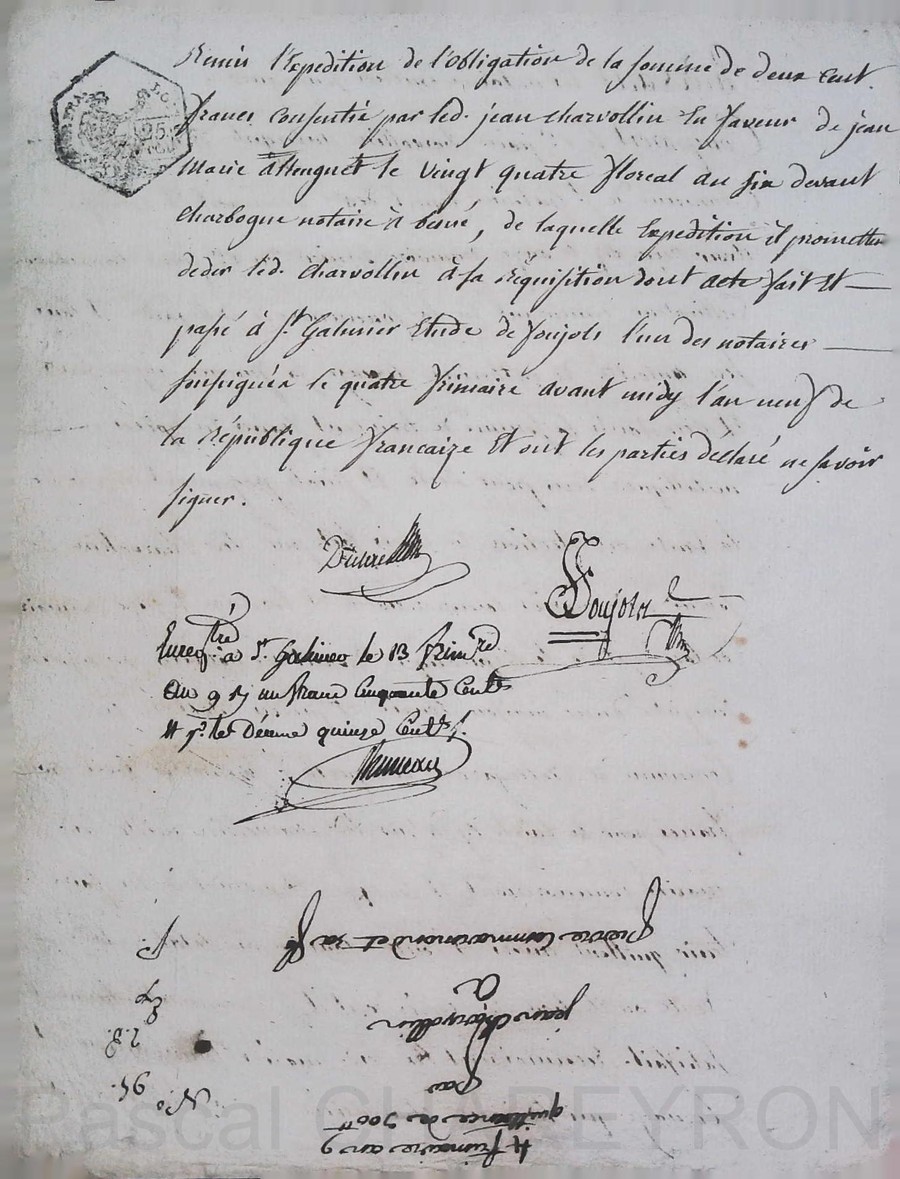 Remis l'Expedition de l'obligation de la somme de deux cent
francs consentie par led. jean charvollin En faveur de jean
Marie le vingt quatre floreal an six devant
charbogne notaire à , de laquelle Expedition il promettes
deder led. charvollin à sa Requisition dont acte fait Et
passé à St. Galmier Etude de foujols l'un des notaires
soussignés le quatre frimaire avant midy l'an neuf de
la République francaize Et ont les parties déclaré ne savoir
signer.
foujols
Enregtré à St. Galmier le 13 frimre
an 9 un franc Cinquante Cents
Décime quinze Cents
4 frimaire an 9
quittance de 300tt
par
jean Charvollin
A
Pierre et sa fe.
No. 94.
28
25
Pascal CHABEYRON